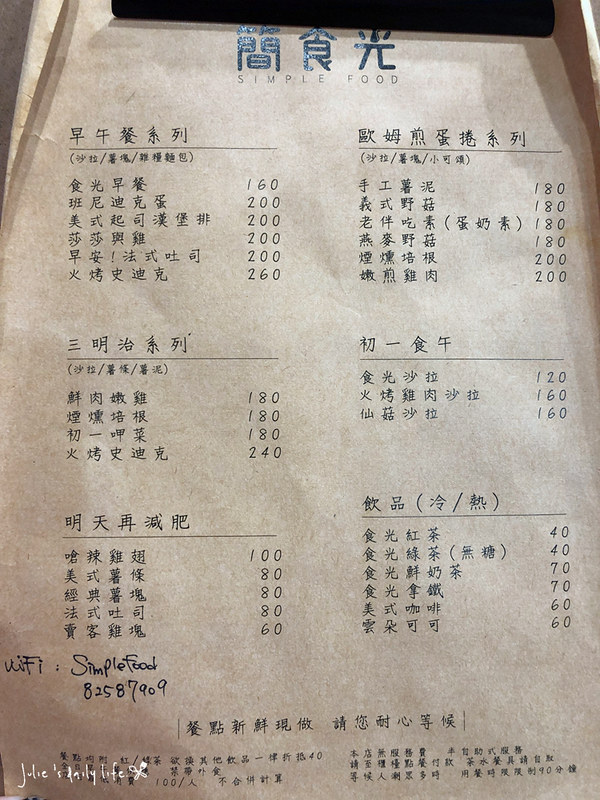 簡食光
SIMPLE FOOD
早午餐系列
(沙拉/薯塊/雜糧麵包)
食光早餐 160
班尼迪克蛋 200
美式起司漢堡排 200
莎莎與雞 200
早安!法式吐司 200
火烤史迪克 260
三明治系列
(沙拉/薯條/薯泥)
鮮肉嫩雞 180
煙燻培根 180
初一呷菜 180
火烤史迪克 240
明天再減肥
嗆辣雞翅 100
美式薯條 80
經典薯塊 80
法式吐司 80
賣客雞塊 60
歐姆煎蛋捲系列
(沙拉/薯塊/小可頌)
手工薯泥 180
義式野菇 180
老伴吃素(蛋奶素) 180
燕麥野菇 180
煙燻培根 200
嫩煎雞肉 200
初一食午
食光沙拉 120
火烤雞肉沙拉 160
仙菇沙拉 160
飲品(冷/熱)
食光紅茶 40
食光綠茶(無糖) 40
食光鮮奶茶 70
食光拿鐵 70
美式咖啡 60
雲朵可可 60
WiFi : SimpleFood
82587909
|餐點新鮮現做 請您耐心等候|
餐點均附 紅/綠茶 欲換其他飲品一律折抵40
禁帶外食
100/人 不合併計算
本店無服務費 半自助式服務
請至櫃檯點餐付款 茶水餐具請自取
等候人潮眾多時 用餐時限限制90分鐘
Julie's daily life